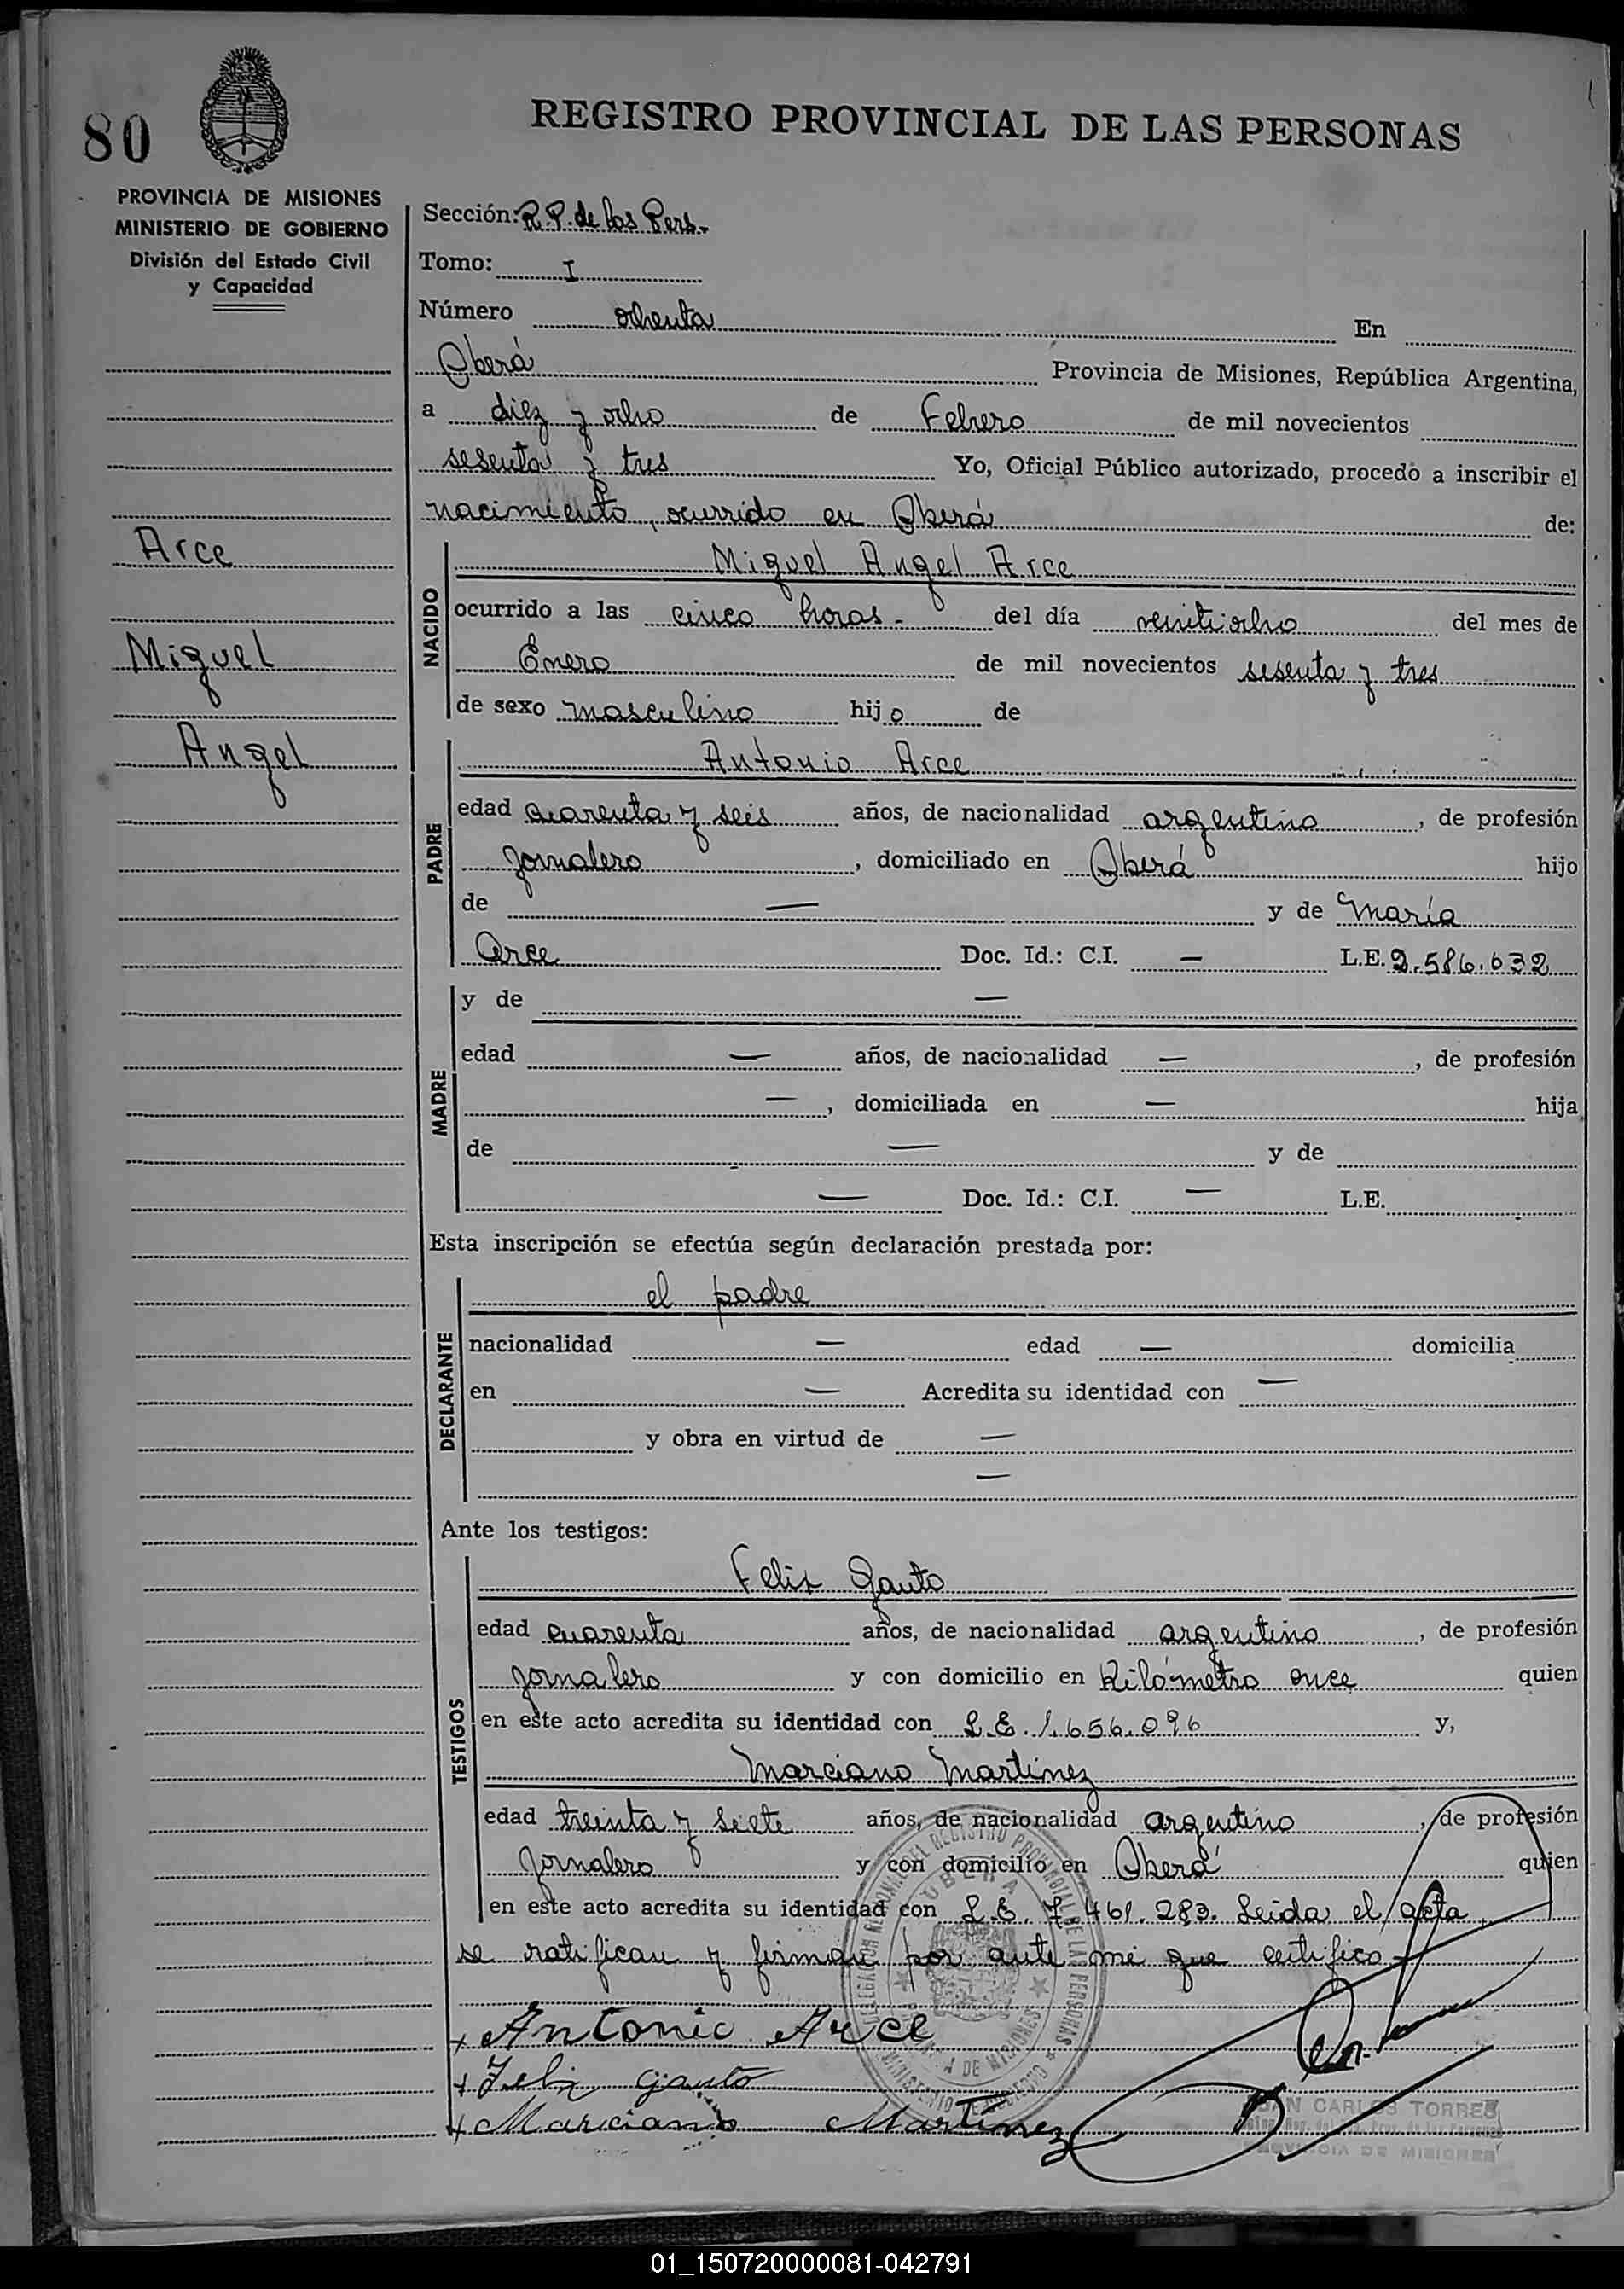 80
REGISTRO PROVINCIAL DE LAS PERSONAS
PROVINCIA DE MISIONES
MINISTERIO DE GOBIERNO
División del Estado Civil
y Capacidad
Arce
Miguel
Angel
Sección: R.P. de las Pers.
Tomo: I
Número ochenta En
Oberá Provincia de Misiones, República Argentina,
a diez y ocho de Febrero de mil novecientos
sesenta y tres Yo, Oficial Público autorizado, procedo a inscribir el
nacimiento, ocurrido en Oberá de:
NACIDO
Miguel Angel Arce
ocurrido a las cinco horas - del día veintiocho del mes de
Enero de mil novecientos sesenta y tres
de sexo masculino hijo de
PADRE
Antonio Arce
edad cuarenta y seis años, de nacionalidad argentino, de profesión
Jornalero, domiciliado en Oberá hijo
de — y de María
Arce Doc. Id.: C.I. — L.E. 2.586.632
MADRE
y de —
edad — años, de nacionalidad —, de profesión
—, domiciliada en — hija
de — y de
— Doc. Id.: C.I. — L.E.
Esta inscripción se efectúa según declaración prestada por:
DECLARANTE
el padre
nacionalidad — edad — domicilia
en — Acredita su identidad con —
y obra en virtud de —
—
Ante los testigos:
TESTIGOS
Felix Gauto
edad cuarenta años, de nacionalidad argentino, de profesión
Jornalero y con domicilio en Kilómetro once quien
en este acto acredita su identidad con L.E. 1.656.096 y,
Marciano Martinez
edad treinta y siete años, de nacionalidad argentino, de profesión
Jornalero y con domicilio en Oberá quien
en este acto acredita su identidad con L.E. 7.461.283. Leida el acta,
se ratifican y firman por ante mi que certifico
+ Antonio Arce
+ Felix Gauto
+ Marciano Martinez
JUAN CARLOS TORRES
PROVINCIA DE MISIONES
01_150720000081-042791